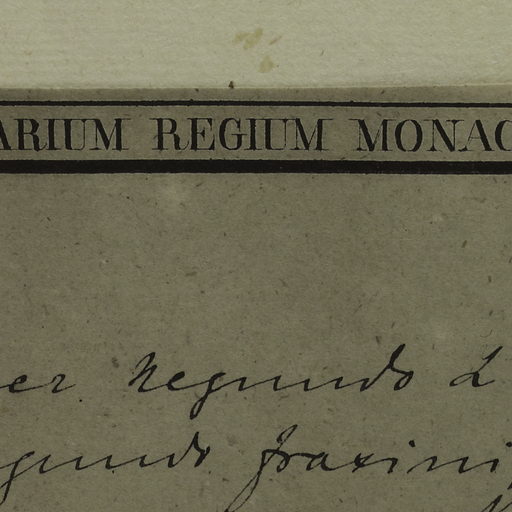 ARIUM REGIUM MONAC
er Negundo L
gundo fraxini